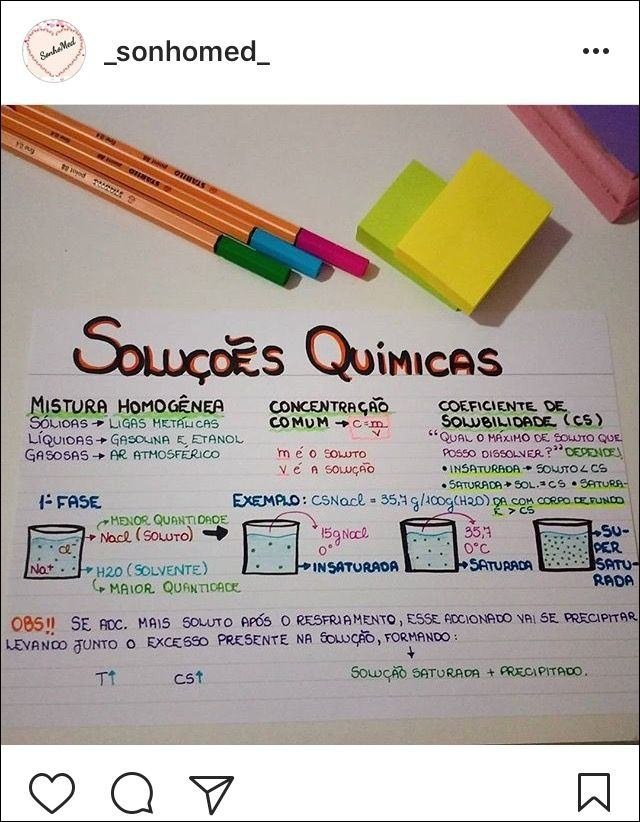 SonhoMed
_sonhomed_
STABILO point 88 fine 0,4
STABILO point 88
SOLUÇÕES QUÍMICAS
MISTURA HOMOGÊNEA
SÓLIDAS → LIGAS METÁLICAS
LÍQUIDAS → GASOLINA E ETANOL
GASOSAS → AR ATMOSFÉRICO
CONCENTRAÇÃO
COMUM → C=m/V
m É O SOLUTO
V É A SOLUÇÃO
COEFICIENTE DE
SOLUBILIDADE (CS)
"QUAL O MÁXIMO DE SOLUTO QUE
POSSO DISSOLVER?" DEPENDE!
• INSATURADA → SOLUTO < CS
• SATURADA → SOL. = CS • SATURA-
DA COM CORPO DE FUNDO
É > CS
1- FASE
MENOR QUANTIDADE
NaCl (SOLUTO)
Cl-
Na+
H2O (SOLVENTE)
MAIOR QUANTIDADE
EXEMPLO: CSNaCl = 35,7g/100g(H2O)
15g NaCl
0°
INSATURADA
35,7
0°C
SATURADA
SU-
PER
SATU-
RADA
OBS!! SE ADC. MAIS SOLUTO APÓS O RESFRIAMENTO, ESSE ADCIONADO VAI SE PRECIPITAR
LEVANDO JUNTO O EXCESSO PRESENTE NA SOLUÇÃO, FORMANDO:
↓
T↑ CS↑ SOLUÇÃO SATURADA + PRECIPITADO.